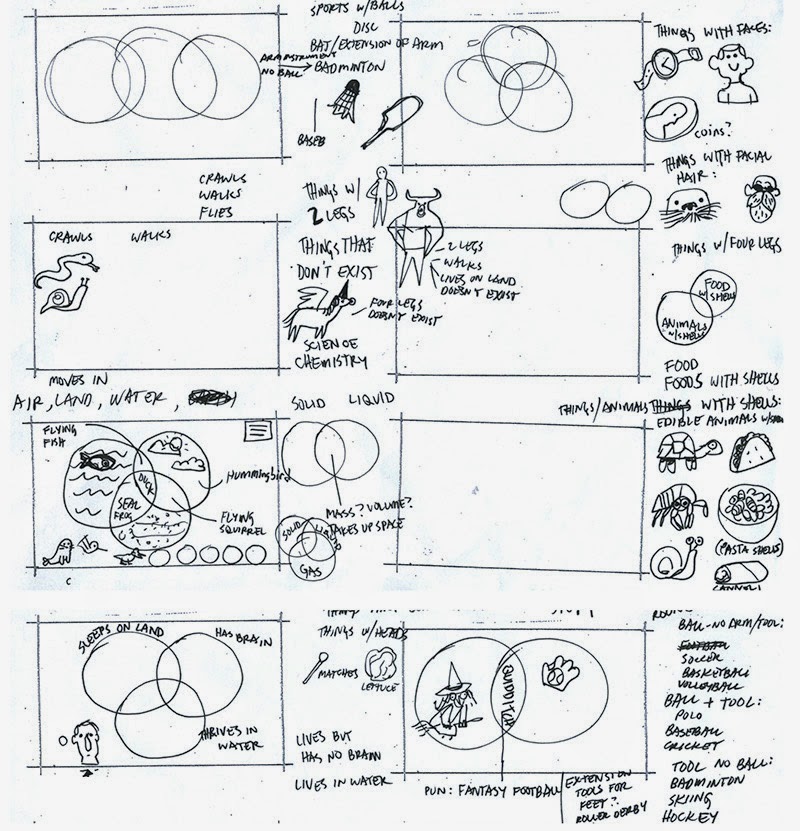 SPORTS W/BALLS
DISC
BAT/EXTENSION OF ARM
NO BALL
BADMINTON
BASEB
THINGS WITH FACES:
coins?
THINGS WITH FACIAL
HAIR:
CRAWLS
WALKS
FLIES
CRAWLS WALKS
THINGS W/
2 LEGS
THINGS THAT
DON'T EXIST
FOUR LEGS
DOESN'T EXIST
SCIENCE
CHEMISTRY
2 LEGS
WALKS
LIVES ON LAND
DOESN'T EXIST
THINGS W/FOUR LEGS
FOOD
W/SHELLS
ANIMALS
W/SHELLS
FOOD
FOODS WITH SHELLS
MOVES IN
AIR, LAND, WATER,
FLYING
FISH
DUCK
SEAL
FROG
HUMMINGBIRD
FLYING
SQUIRREL
C
SOLID LIQUID
MASS? VOLUME?
TAKES UP SPACE
SOLID
LIQUID
GAS
THINGS/ANIMALS THINGS WITH SHELLS:
EDIBLE ANIMALS W/
(PASTA SHELLS)
CANNOLI
SLEEPS ON LAND
HAS BRAIN
THRIVES IN
WATER
THINGS W/HEADS
MATCHES
LETTUCE
LIVES BUT
HAS NO BRAIN
LIVES IN WATER
QUIDDITCH
PUN: FANTASY FOOTBALL
EXTENSION
TOOLS FOR
FEET?
ROLLER DERBY
BALL-NO ARM/TOOL:
FOOTBALL
SOCCER
BASKETBALL
VOLLEYBALL
BALL + TOOL:
POLO
BASEBALL
CRICKET
TOOL NO BALL:
BADMINTON
SKIING
HOCKEY